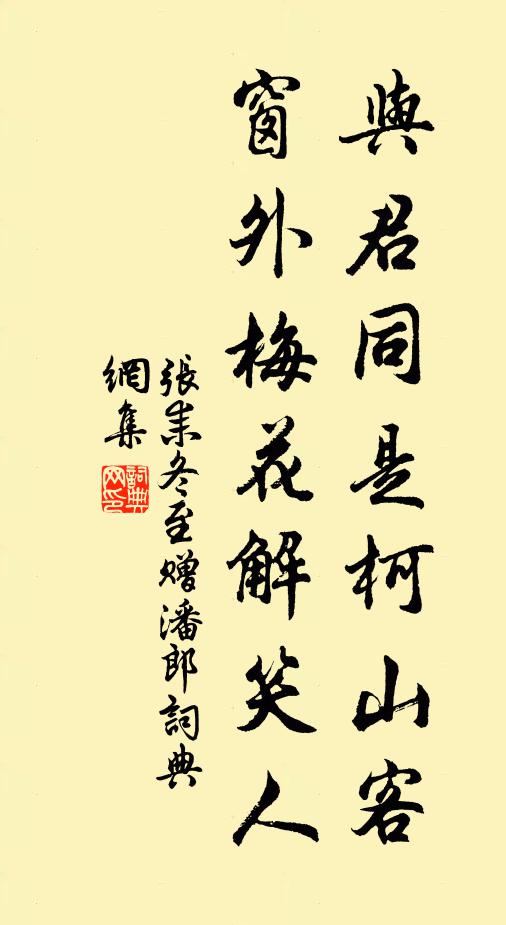 與君同是柯山客
窗外梅花解笑人
張耒冬至贈潘郎詞典
網集
詞典
網印